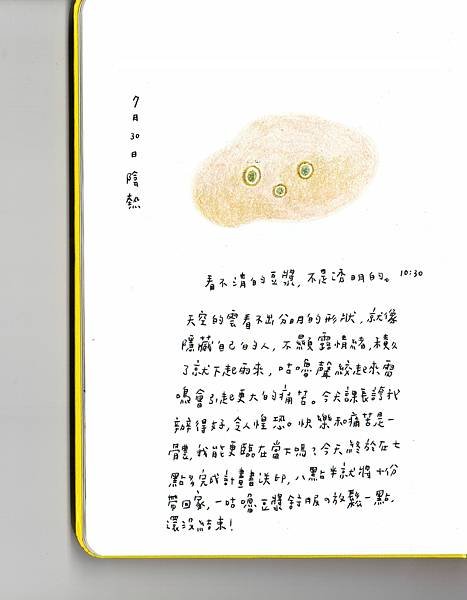 7月30日 陰熱
看不清的豆漿,不是透明的。 10:30
天空的雲看不出分明的形狀,就像
隱藏自己的人,不顯露情緒,積久
了就下起雨來,咕嚕聲絞起來雷
鳴會引起更大的痛苦。今天課長誇我
辦得好,令人惶恐。快樂和痛苦是一
體,我能更臨在當下嗎?今天終於在七
點多完成計畫書送印,八點半就將十份
帶回家,一咕嚕豆漿舒服の放鬆一點,
還沒結束!